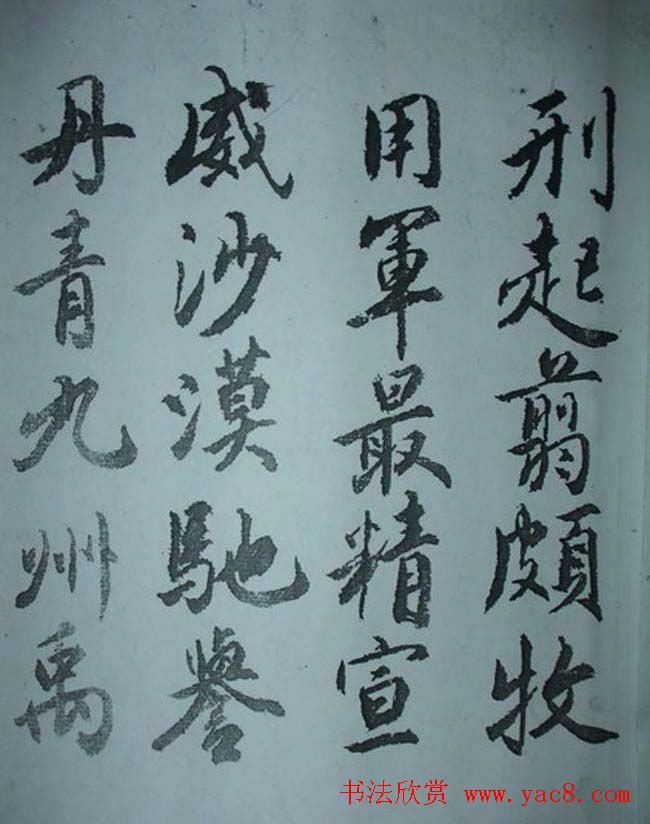 刑起翦頗牧
用軍最精宣
威沙漠馳譽
丹青九州禹
书法欣赏 www.yac8.com